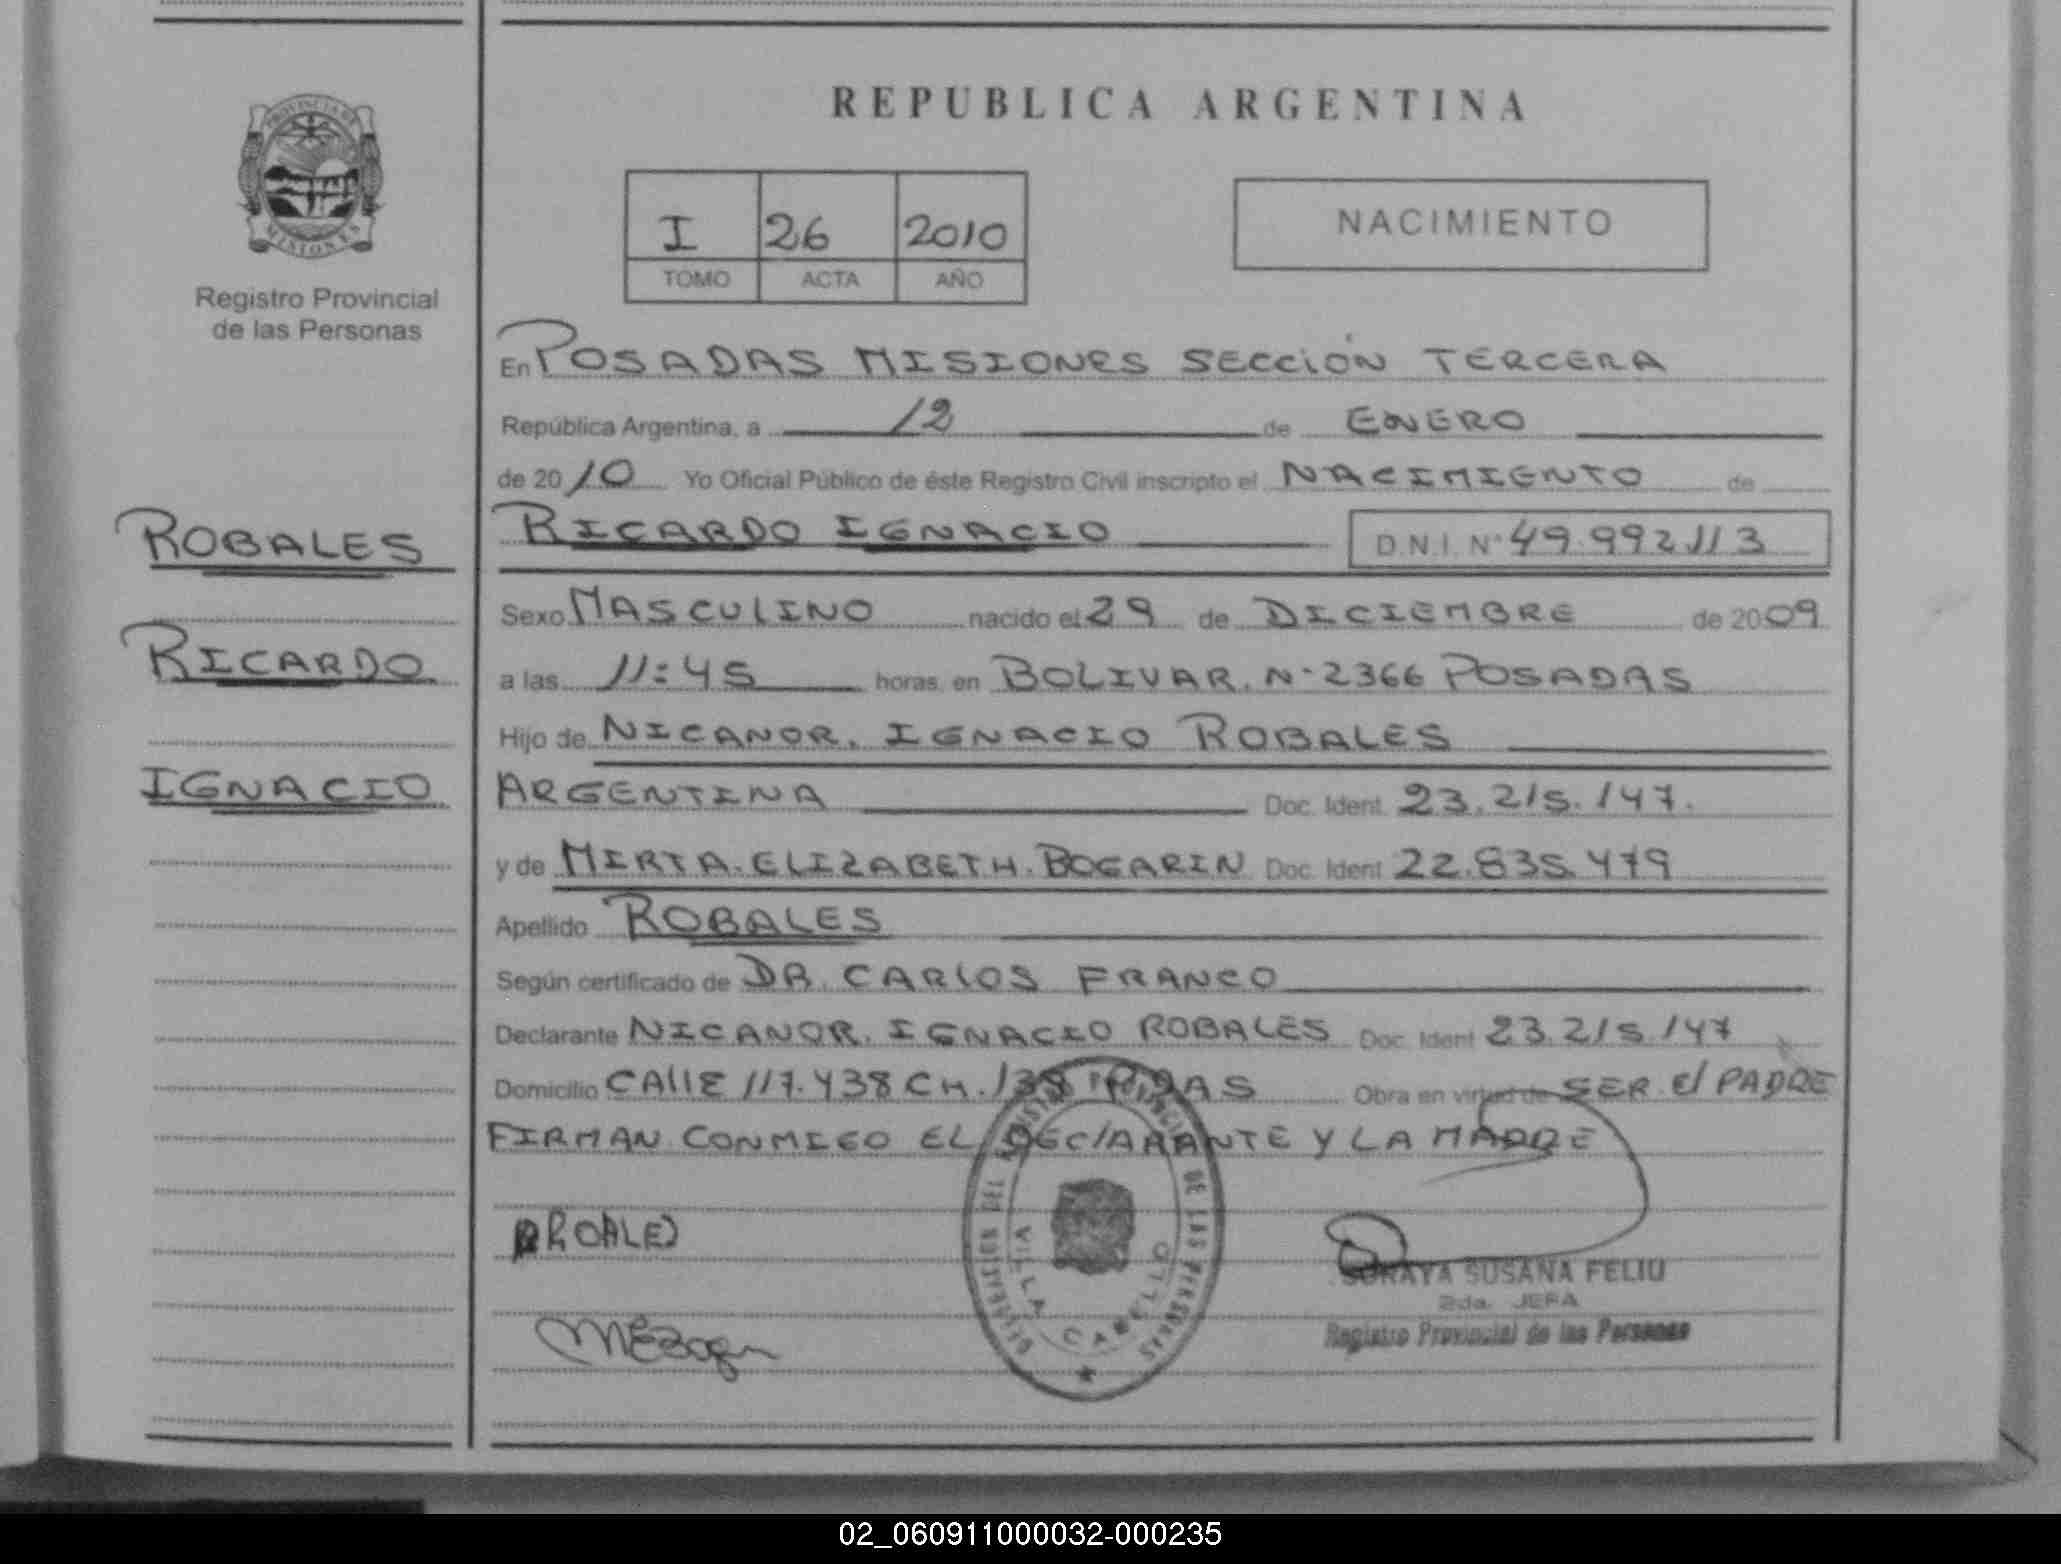 REPUBLICA ARGENTINA
PROVINCIA DE
MISIONES
Registro Provincial
de las Personas
I 26 2010
TOMO ACTA AÑO
NACIMIENTO
En POSADAS MISIONES SECCIÓN TERCERA
República Argentina, a 12 de ENERO
de 2010 Yo Oficial Público de éste Registro Civil inscripto el NACIMIENTO de
ROBALES
RICARDO
IGNACIO
RICARDO IGNACIO D.N.I. N° 49.992113
Sexo MASCULINO nacido el 29 de DICIEMBRE de 2009
a las 11:45 horas, en BOLIVAR. N-2366 POSADAS
Hijo de NICANOR. IGNACIO ROBALES
ARGENTINA Doc. Ident. 23.215.147.
y de MIRTA. ELIZABETH. BOGARIN Doc. Ident. 22.835.479
Apellido ROBALES
Según certificado de DR. CARLOS FRANCO
Declarante NICANOR. IGNACIO ROBALES Doc. Ident 23.215.147
Domicilio CALLE 117.438 CH. 138 PDAS Obra en virtud de SER. El PADRE
FIRMAN CONMIGO EL DEClARANTE Y LA MADRE
DELEGACION DEL REGISTRO PROVINCIAL DE LAS PERSONAS
VILLA CABELLO
SORAYA SUSANA FELIU
2da. JEFA
Registro Provincial de las Personas
02_060911000032-000235